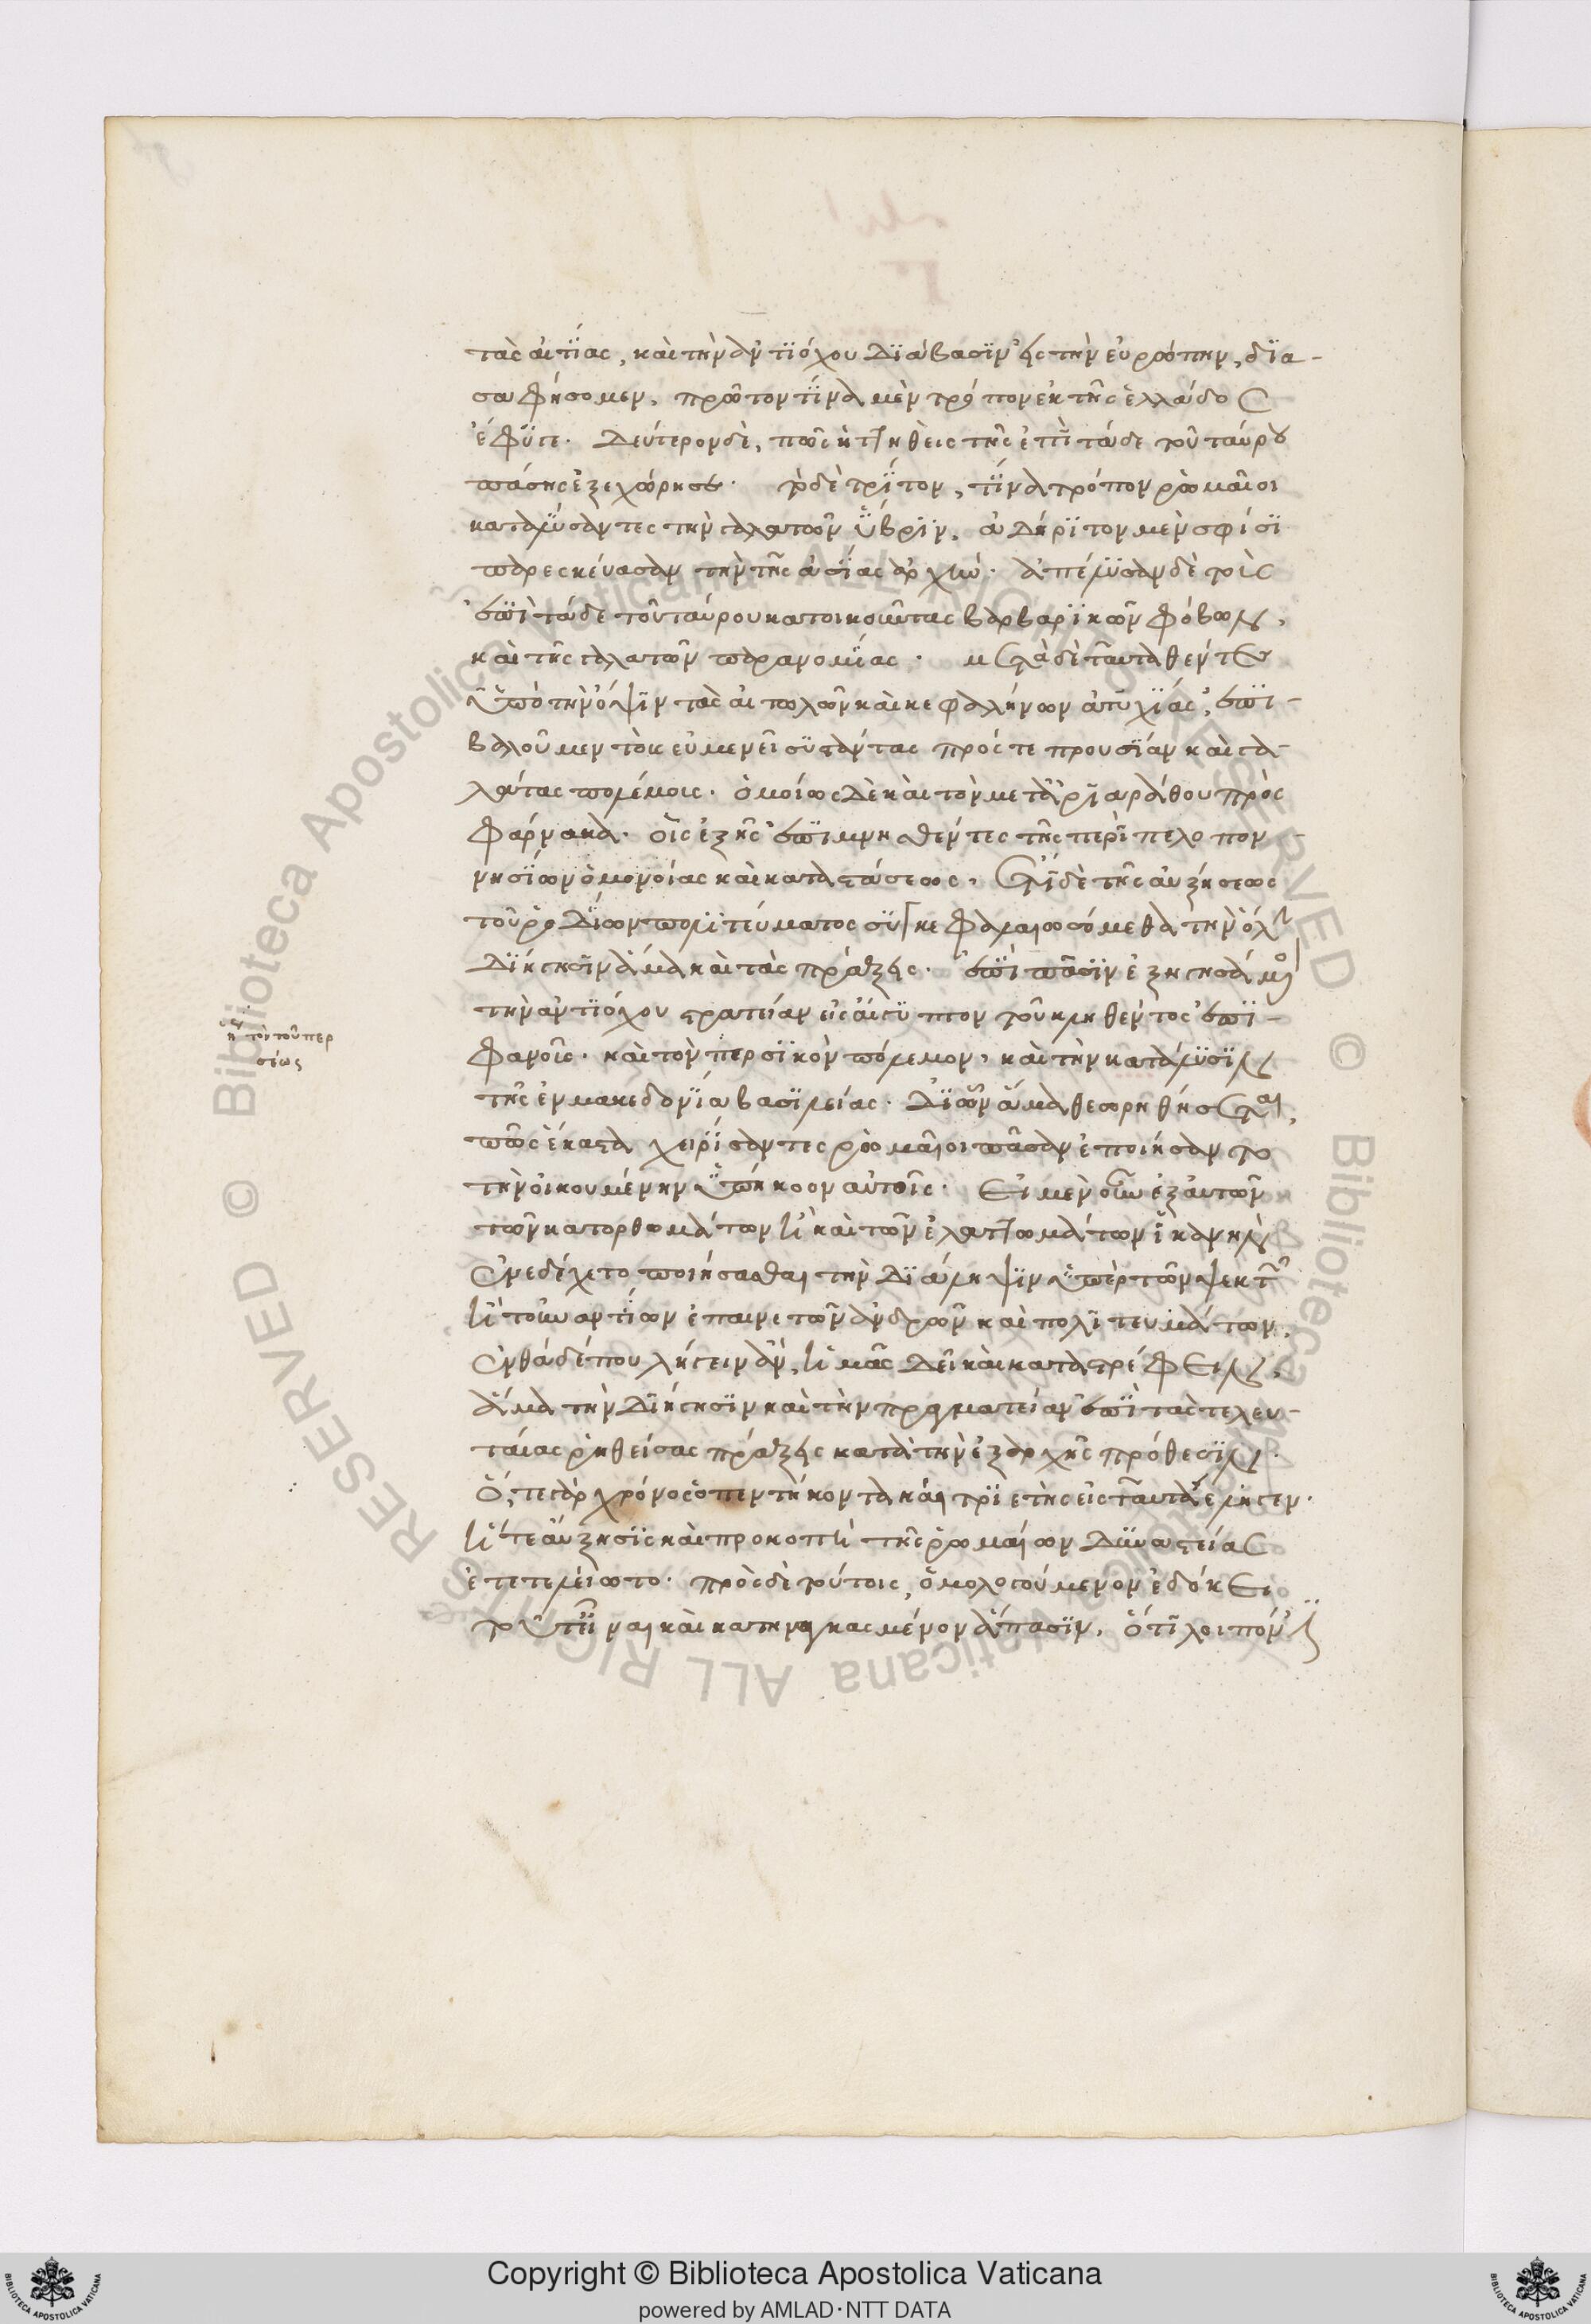 τὰς αἰτίας, καὶ τὴν ἀντιόχου διάβασιν εἰς τὴν εὐρώπην, δια-
σαφήσομεν, πρῶτον τίνα μὲν τρόπον ἐκ τῆς ἑλλάδος
ἔφυγε. δεύτερον δὲ, πῶς ἡττηθεὶς τῆς ἐπὶ τάδε τοῦ ταύρου
πάσης ἐξεχώρησε. τὸ δὲ τρίτον, τίνα τρόπον ῥωμαῖοι
καταλύσαντες τὴν γαλατῶν ὕβριν, ἀδήριτον μὲν σφίσι
παρεσκεύασαν τὴν τῆς ἀσίας ἀρχήν. ἀπέλυσαν δὲ τοὺς
ἐπὶ τάδε τοῦ ταύρου κατοικοῦντας βαρβαρικῶν φόβων,
καὶ τῆς γαλατῶν παρανομίας. μετὰ δὲ ταῦτα θέντες
ὑπὸ τὴν ὄψιν τὰς αἰτωλῶν καὶ κεφαλήνων ἀτυχίας, ἐπι-
βαλοῦμεν τοὺς εὐμενεῖ συστάντας πρός τε προυσίαν καὶ γα-
λάτας πολέμους. ὁμοίως δὲ καὶ τὸν μετὰ ἀριαράθου πρὸς
φάρνακα. οἷς ἑξῆς ἐπιμνησθέντες τῆς περὶ πελοπον-
νησίων ὁμονοίας καὶ καταστάσεως, ἔτι δὲ τῆς αὐξήσεως
τοῦ ῥοδίων πολιτεύματος συγκεφαλαιωσόμεθα τὴν ὅλην
διήγησιν ἅμα καὶ τὰς πράξεις. ἐπὶ πᾶσιν ἐξηγησάμενοι
τὴν ἀντιόχου στρατείαν εἰς αἴγυπτον τοῦ κληθέντος ἐπι-
φανοῦς. καὶ τὸν περσικὸν πόλεμον, καὶ τὴν κατάλυσιν
ἢ τὸν τοῦ περ
σέως
τῆς ἐν μακεδονίᾳ βασιλείας. δι' ὧν ἅμα θεωρηθήσεται,
πῶς ἕκαστα χειρίσαντες ῥωμαῖοι πᾶσαν ἐποιήσαντο
τὴν οἰκουμένην ὑπήκοον αὐτοῖς. εἰ μὲν οὖν ἐξ αὐτῶν
τῶν κατορθωμάτων ἢ καὶ τῶν ἐλαττωμάτων ἱκανὴν
ἐνεδέχετο ποιήσασθαι τὴν διάληψιν ὑπὲρ τῶν ψεκτῶν
ἢ τοὐναντίον ἐπαινετῶν ἀνδρῶν καὶ πολιτευμάτων,
ἐνθάδέ που λήγειν ἂν ἡμᾶς δεῖ καὶ καταστρέφειν,
ἅμα τὴν διήγησιν καὶ τὴν πραγματείαν ἐπὶ τὰς τελευ-
ταίας ῥηθείσας πράξεις κατὰ τὴν ἐξ ἀρχῆς πρόθεσιν.
ὅ, τε γὰρ χρόνος ὁ πεντηκοντακαιτριετὴς εἰς ταῦτα ἔληγεν.
ἥ τε αὔξησις καὶ προκοπὴ τῆς ῥωμαίων δυναστείας
ἐτετελείωτο. πρὸς δὲ τούτοις, ὁμολογούμενον ἐδόκει
τοῦτ' εἶναι καὶ κατηναγκασμένον ἅπασιν, ὅτι λοιπόν ἐστι